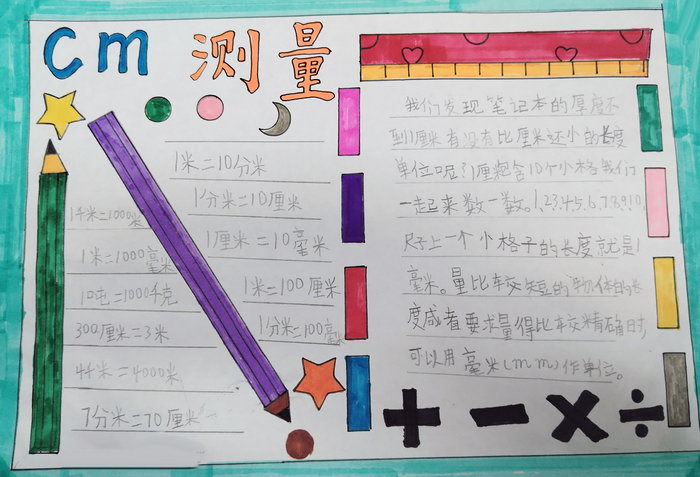 cm 测量
1米=10分米
1分米=10厘米
1厘米=10毫米
1米=100厘米
1分米=100毫米
1千米=1000米
1米=1000毫米
10吨=1000千克
300厘米=3米
44米=4000米
7分米=70厘米
我们发现笔记本的厚度不
到1厘米有没有比厘米还小的长度
单位呢?1厘米包含10个小格我们
一起来数一数。1、2、3、4、5、6、7、8、9、10
尺子上一个小格子的长度就是1
毫米。量比较短的物体的长
度或者要求量得比较精确时,
可以用毫米(mm)作单位。
+ − × ÷